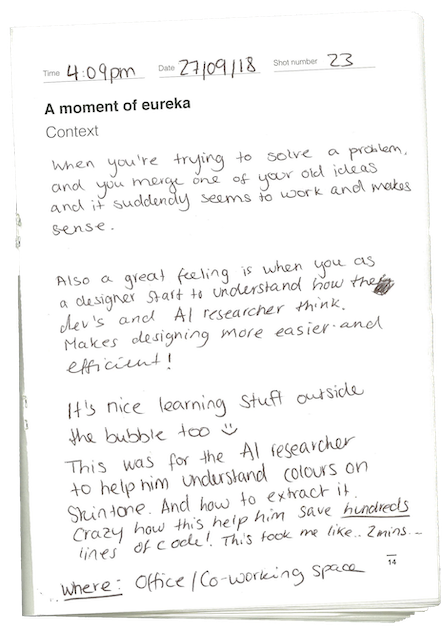 Time 4:09pm Date 27/09/18 Shot number 23
A moment of eureka
Context
When you're trying to solve a problem,
and you merge one of your old ideas
and it suddendy seems to work and makes
sense.
Also a great feeling is when you as
a designer start to understand how the
dev's and AI researcher think.
Makes designing more easier and
efficient!
It's nice learning stuff outside
the bubble too
This was for the AI researcher
to help him understand colours on
Skintone. And how to extract it.
Crazy how this help him save hundreds
lines of code! This took me like.. 2mins...
14
Where: Office/Co-working space